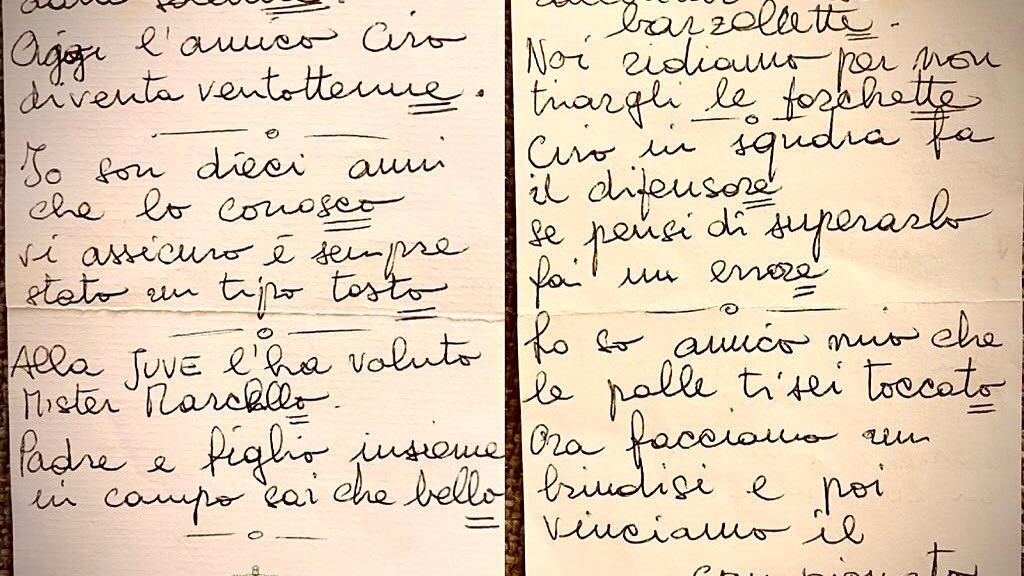 Oggi l'amico Ciro
diventa ventottenne.
Io son dieci anni
che lo conosco
vi assicuro è sempre
stato un tipo tosto
Alla JUVE l'ha voluto
Mister Marcello.
Padre e figlio insieme
in campo sai che bello
barzellette.
Noi ridiamo per non
tirargli le forchette
Ciro in squadra fa
il difensore
se pensi di superarlo
fai un errore
Lo so amico mio che
le palle ti sei toccato
Ora facciamo un
brindisi e poi
vinciamo il
campionato